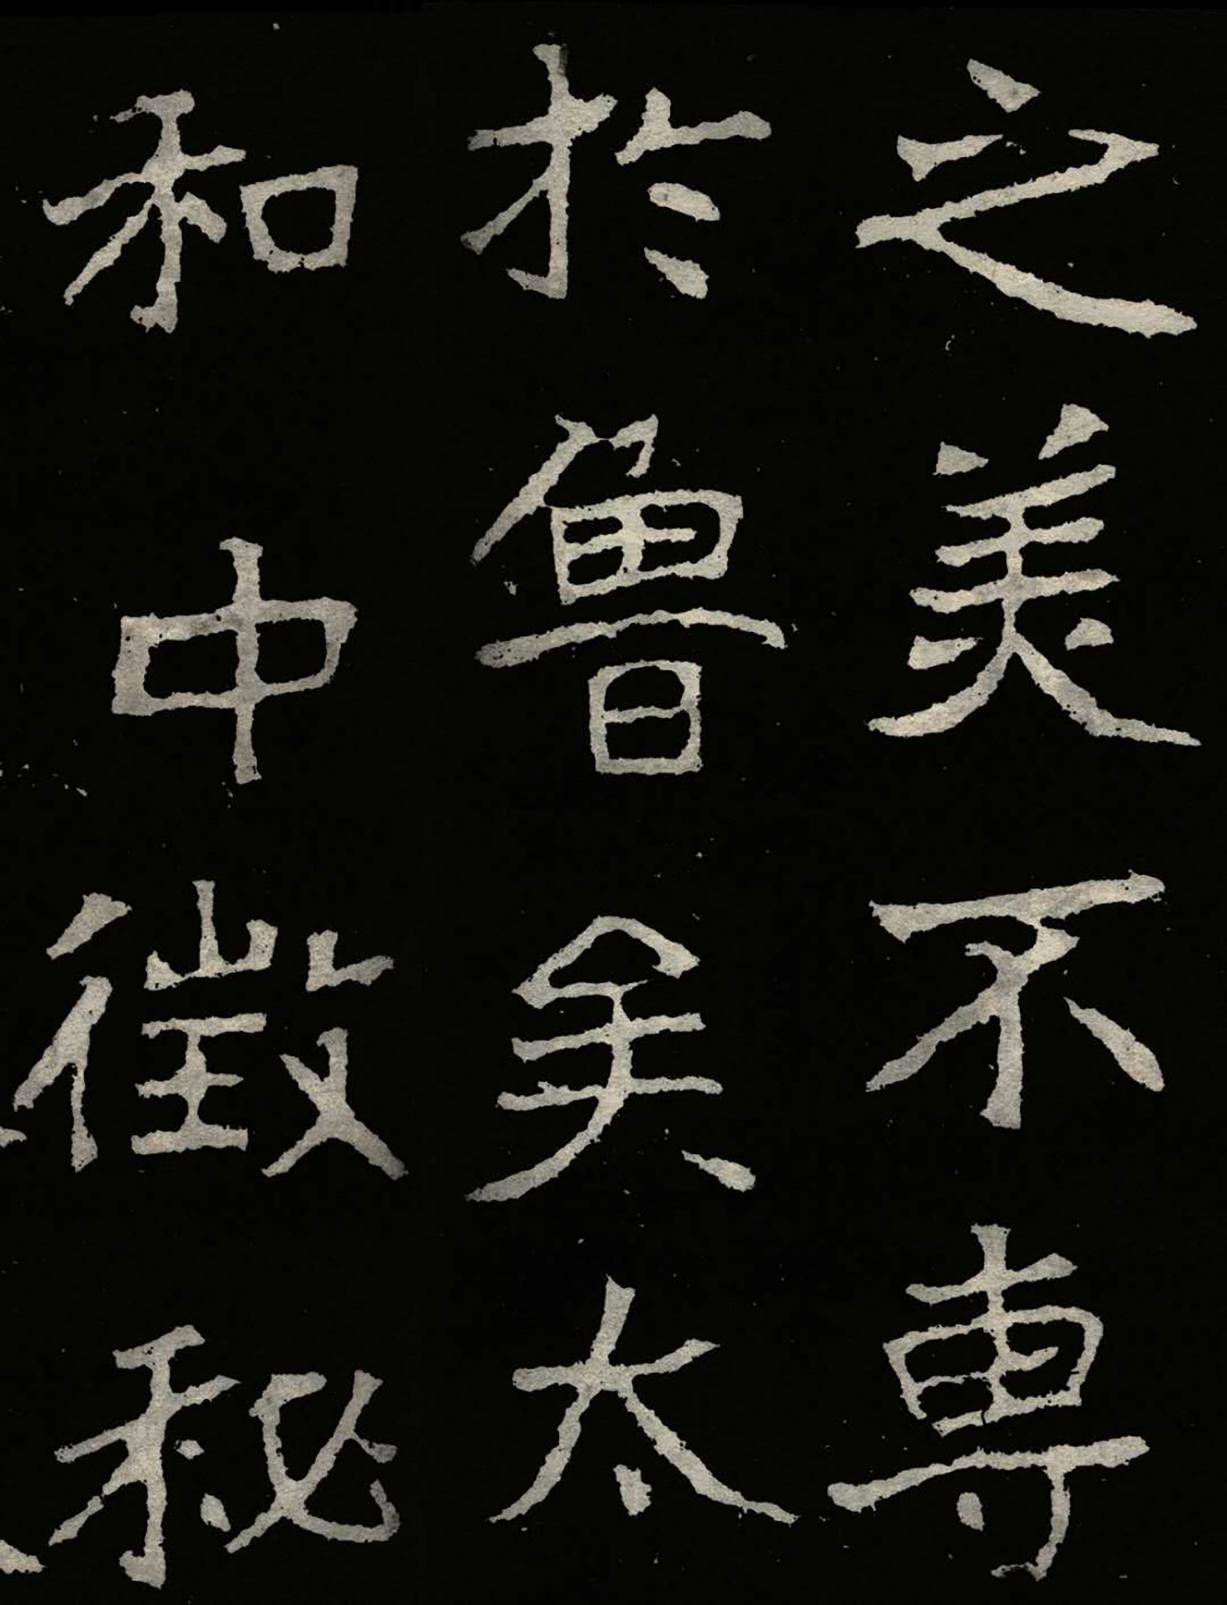 之美不専
於魯矣太
和中徵秘